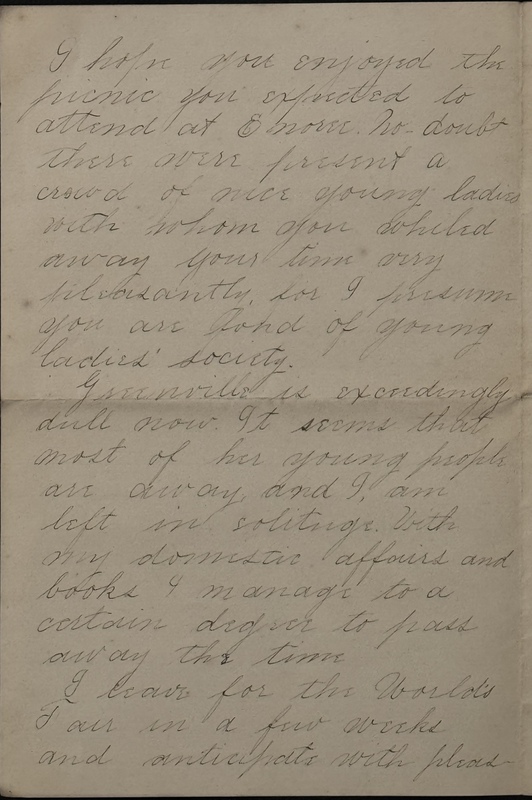 I hope you enjoyed the
picnic you expected to
attend at Enoree. No-doubt
there were present a
crowd of nice young ladies
with whom you whiled
away your time very
pleasantly, for I presume
you are fond of young
ladies' society.
Greenville is exceedingly
dull now. It seems that
most of her young people
are away, and I, am
left in solitude. With
my domestic affairs and
books I manage to a
certain degree to pass
away the time
I leave for the World's
Fair in a few weeks
and anticipate with pleas-